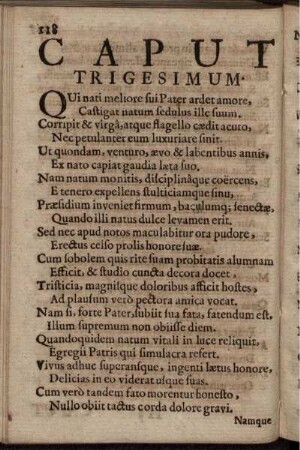 118
CAPUT
TRIGESIMUM.
QUi nati meliore sui Pater ardet amore,
Castigat natum sedulus ille suum.
Corripit & virgâ, atque flagello cædit acuto,
Nec petulanter eum luxuriare sinit.
Ut quondam, venturo, ævo & labentibus annis,
Ex nato capiat gaudia læta suo.
Nam natum monitis, disciplinâque coërcens,
E tenero expellens stulticiamque sinu,
Præsidium inveniet firmum, baculumq; senectæ,
Quando illi natus dulce levamen erit.
Sed nec apud notos maculabitur ora pudore,
Erectus celso prolis honore suæ.
Cum sobolem quis rite suam probitatis alumnam
Efficit, & studio cuncta decora docet,
Tristicia, magnisque doloribus afficit hostes,
Ad plausum verò pectora amica vocat.
Nam si, forte Pater, subiit sua fata, fatendum est.
Illum supremum non obiisse diem.
Quandoquidem natum vitali in luce reliquit.
Egregii Patris qui simulacra refert.
Vivus adhuc superansque, ingenti lætus honore,
Delicias in eo viderat usque suas.
Cum verò tandem fato morentur honesto,
Nullo obiit tactus corda dolore gravi.
Namque